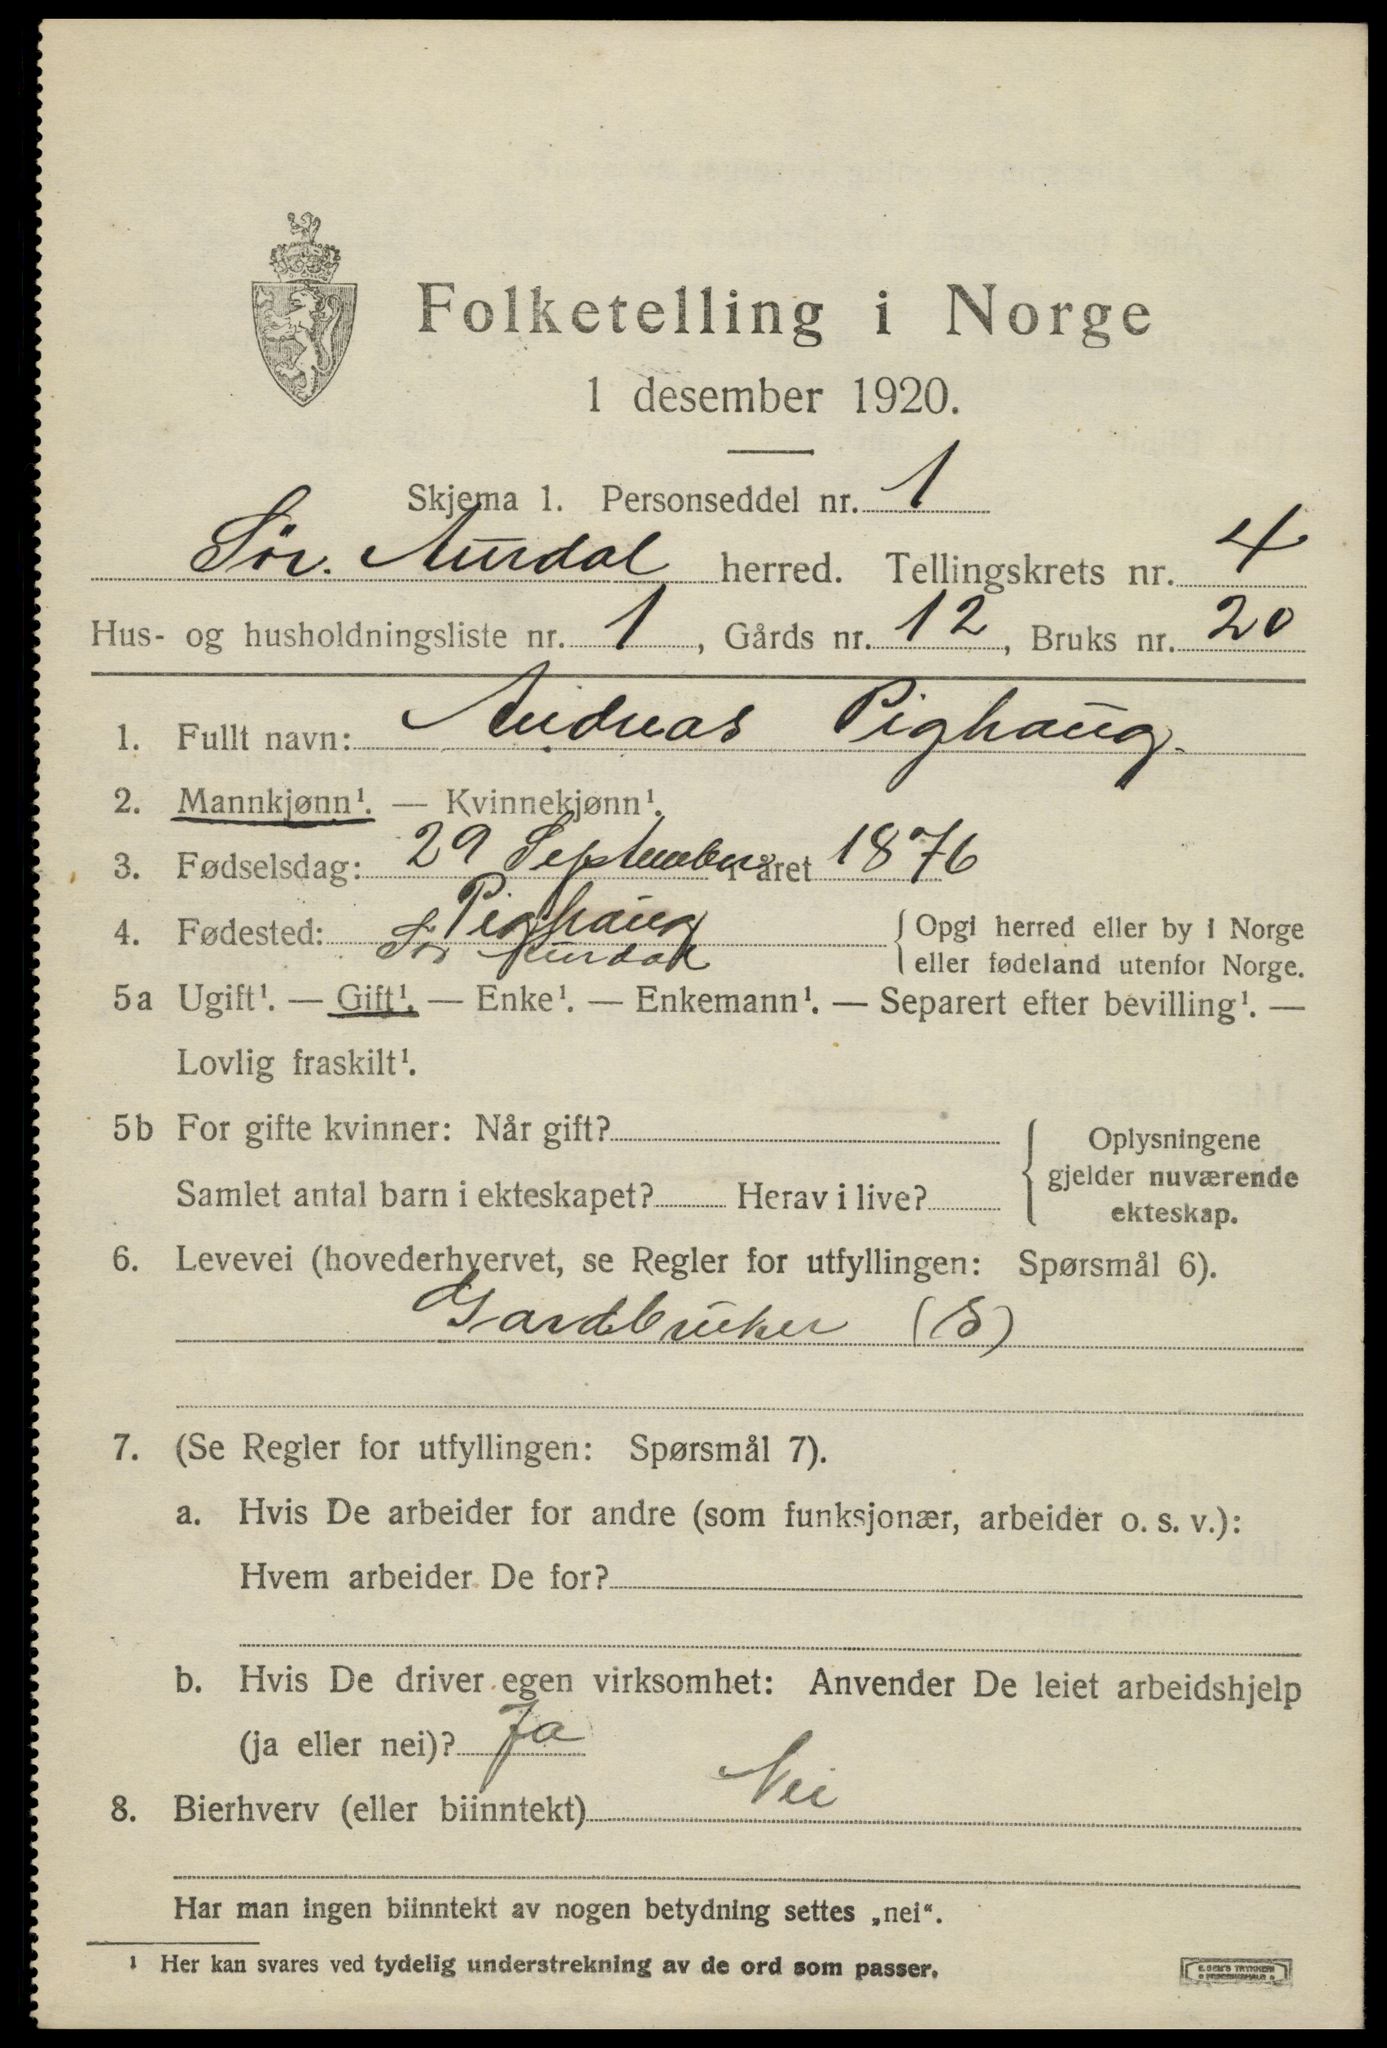 Folketelling i Norge
1 desember 1920.
Skjema 1. Personseddel nr. 1
Sör. Aurdal herred. Tellingskrets nr. 4
Hus- og husholdningsliste nr. 1, Gårds nr. 12, Bruks nr. 20
1. Fullt navn: Andreas Pighaug.
2. Mannkjønn¹. — Kvinnekjønn¹.
3. Fødselsdag: 29 September i året 1876
4. Fødested: Pighaug
Sör Aurdal
{ Opgi herred eller by i Norge
eller fødeland utenfor Norge.
5a Ugift¹. — Gift¹. — Enke¹. — Enkemann¹. — Separert efter bevilling¹. —
Lovlig fraskilt¹.
5b For gifte kvinner: Når gift?
Samlet antal barn i ekteskapet? Herav i live?
{ Oplysningene
gjelder nuværende
ekteskap.
6. Levevei (hovederhvervet, se Regler for utfyllingen: Spørsmål 6).
Gardbruker (S)
7. (Se Regler for utfyllingen: Spørsmål 7).
a. Hvis De arbeider for andre (som funksjonær, arbeider o. s. v.):
Hvem arbeider De for?
b. Hvis De driver egen virksomhet: Anvender De leiet arbeidshjelp
(ja eller nei)? Ja
8. Bierhverv (eller biinntekt) Nei
Har man ingen biinntekt av nogen betydning settes „nei“.
¹ Her kan svares ved tydelig understrekning av de ord som passer.